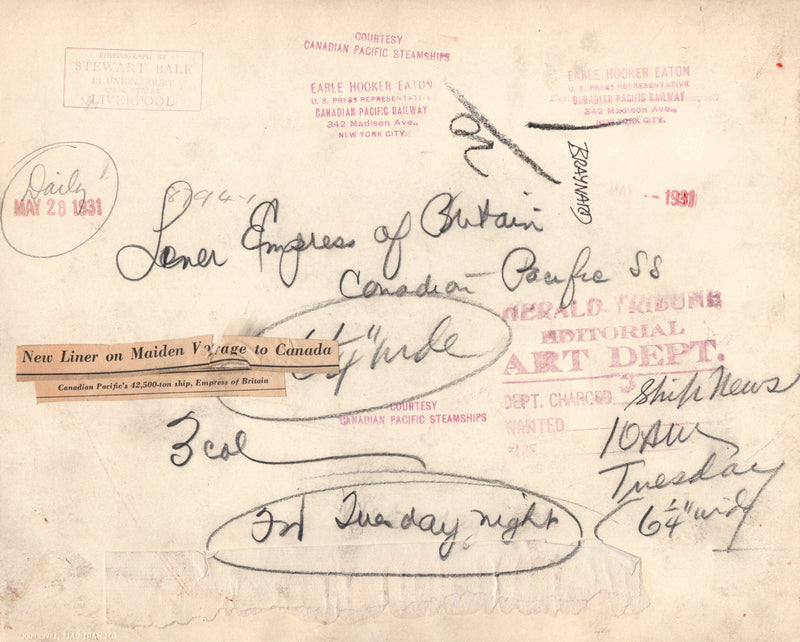 PHOTOGRAPH BY
STEWART BALE
13 UNION COURT
LIVERPOOL
COURTESY
CANADIAN PACIFIC STEAMSHIPS
EARLE HOOKER EATON
U. S. PRESS REPRESENTATIVE
CANADIAN PACIFIC RAILWAY
342 Madison Ave.,
NEW YORK CITY.
EARLE HOOKER EATON
U. S. PRESS REPRESENTATIVE
CANADIAN PACIFIC RAILWAY
342 Madison Ave.,
NEW YORK CITY.
BRAYNARD
Daily
MAY 28 1931
MAY -- 1931
Liner Empress of Britain
Canadian Pacific SS
6¼" wide
New Liner on Maiden Voyage to Canada
Canadian Pacific's 42,500-ton ship, Empress of Britain
HERALD TRIBUNE
EDITORIAL
ART DEPT.
DEPT. CHARGED
Ship News
WANTED
10 AM
Tuesday
6¼" wide
COURTESY
CANADIAN PACIFIC STEAMSHIPS
3 col
For Tuesday night
STEWART BALE, LIVERPOOL